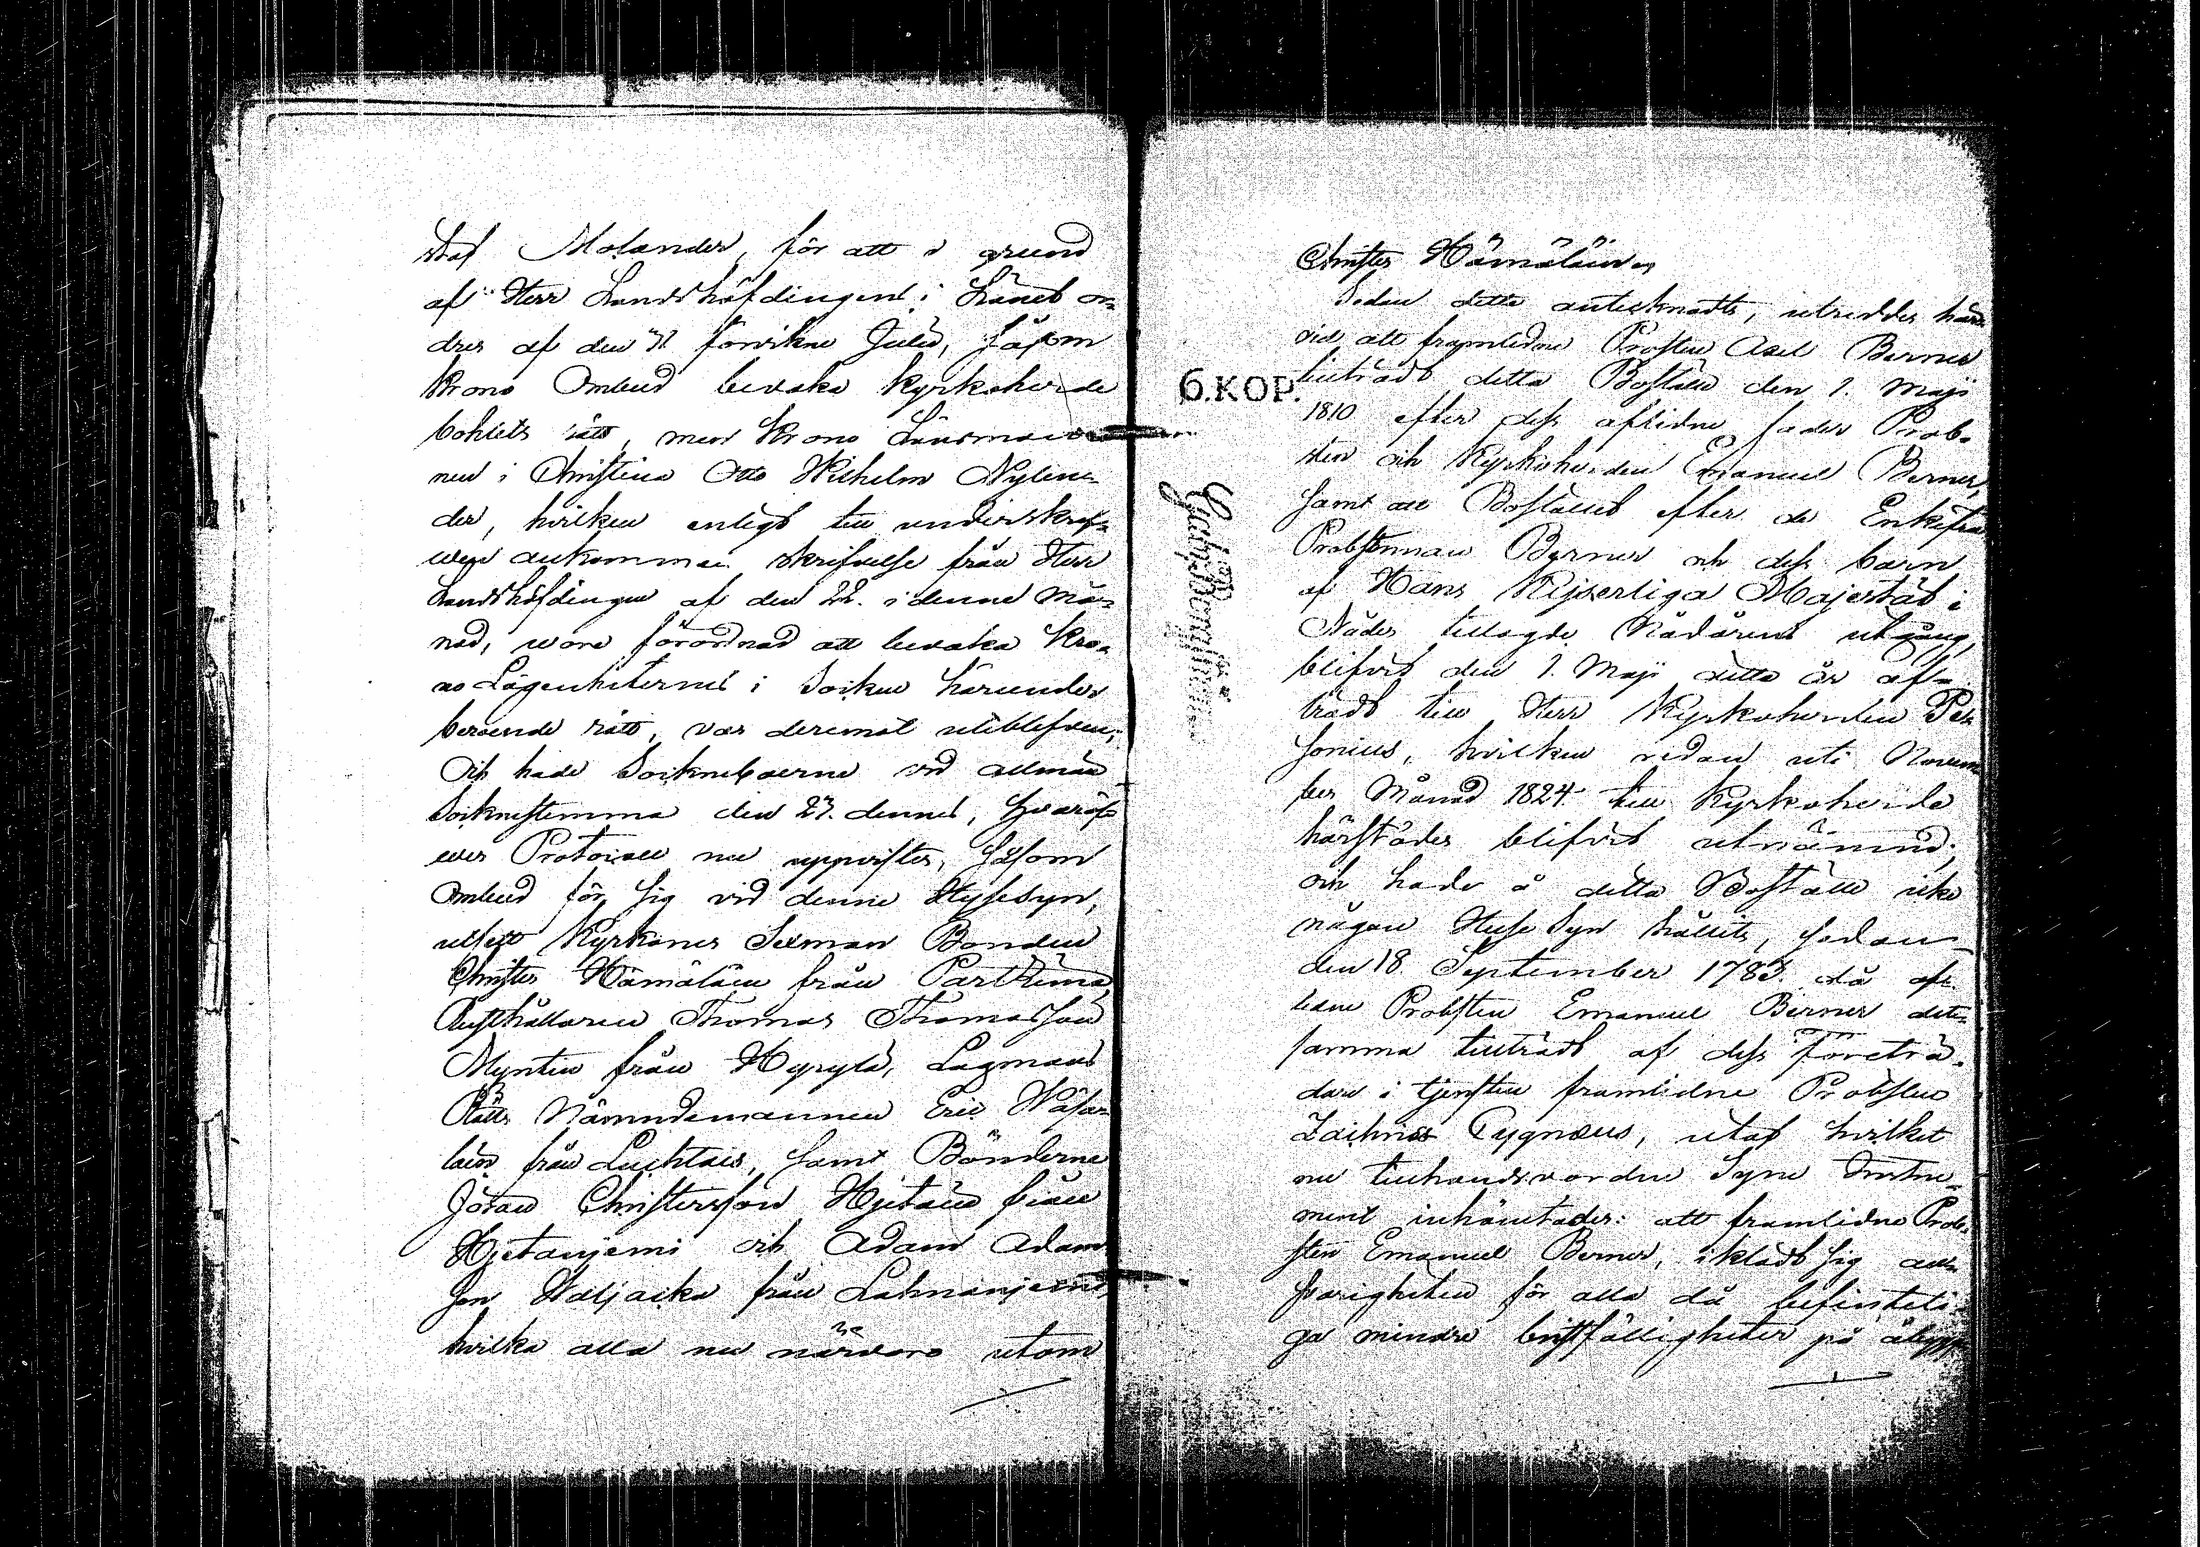 staf Molander, för att i grund
af Herr Landshöfdingens i Länet or-
dres af den 31 förvikne Julii, såsom
Krono Ombud bevaka Kyrkoherde
bohlets rätt, men Krono Länsman-
nen i Christina Otto Wilhelm Nylen-
der, hvilken enligt till underskref-
wen ankommen skrifvelse från Herr
Landshöfdingen af den 22. i denne Må-
nad, wore förordnad att bevaka Kro-
no Lägenheternes i Socknen härunder
beroende rätt, var deremot utiblefven;
Och hade Sockneboerne vid allmän
Socknestemma den 23. dennes, hvaröf-
ver Protocoll nu uppvistes, såsom
Ombud för sig vid denne Husesyn,
utsett Kyrkones Sexman Bonden
Christer Hämäläin från Parkkima
Rusthållaren Thomas Thomasson
Myntin från Hyrylä, Lagmans
Rätts Nämndemannen Eric Wäisä-
läin från Luchtais, samt Bönderne
Jöran Christersson Hjetäin från
Hjetanjemi och Adam Adams
son Waljacka från Lahnanjemi,
hvilka alla nu närvoro utom
Christer Hämäläinen
Sedan detta antecknadts, utreddes här-
vid att framledne Prosten Axel Berner
tillträdt detta Boställe den 1. Maji
1810 efter dess aflidne fader Prob-
sten och Kyrkoherden Emanuel Berner,
samt att Bostället efter de Enkefru
Probstinnan Berner och dess barn
af Hans Kejserliga Majestät i
Nåder tillagde Nådårens utgång,
blifvit den 1. Maji detta år af-
trädt till Herr Kyrkoherden Pet
sonius, hvilken redan uti Novem
ber Månad 1824 till Kyrkoherde
härstädes blifvit utnämnd;
och hade å detta Boställe icke
någon Huse Syn hållits, sedan
den 18. September 1783. då af-
ledne Probsten Emanuel Berner det-
samma tillträdt af dess företrä-
dare i tjensten framledne Probsten
Zachris Cygnæus, utaf hvilket
nu tillhandsvordne Syne Instru-
ment inhämtades: att framledne Prob-
sten Emanuel Berner, iklädt sig an-
svarigheten för alla då befinteli-
ga mindre bristfälligheter på åbygg
6.KOP.